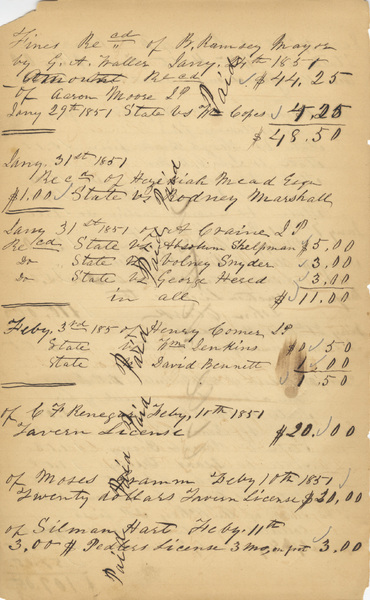 Fines Recd of B. Ramsey Mayor
by G. A. Waller Jany. 24th 1851
Amount Recd $44.25
of Aaron Moore J.P.
Jany 29th 1851 State vs Wm Copes 4.25
$48.50
Jany. 31st 1851
Recd of Hezekiah Mead Esqr
$1.00 State vs Rodney Marshall
Jany 31st 1851 of A Craine J.P.
Recd State vs Absolum Shelpman $5.00
Do State vs Volney Snyder 3.00
Do State vs George Hered 3.00
in all $11.00
Feby. 3rd 185 of Henry Comer J.P.
State vs Wm Jenkins $0.50
State David Bennett 1.00
1.50
of C F Reneger Feby. 10th 1851
Tavern License $20.00
of Moses Feby 10th 1851
Twenty dollars Tavern License $20.00
of Silman Hart Feby. 11th
3.00 $ Pedlers License 3 3.00
Paid
Paid
Paid
Paid
Paid
Paid
Paid